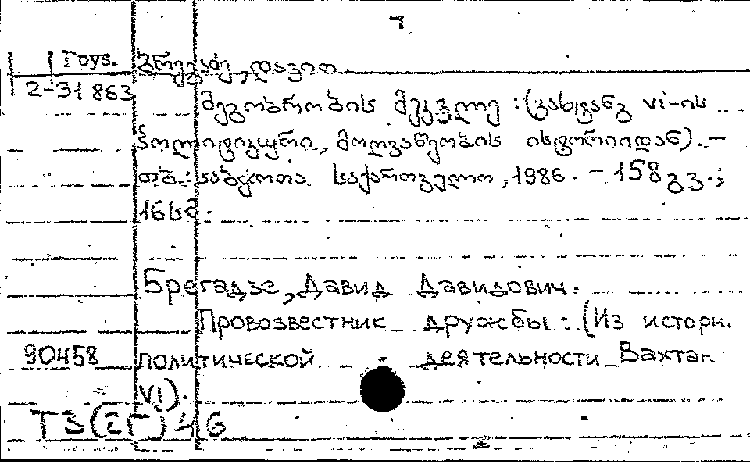 Груз. ბრეგაძე, დავით
2-31863
მეგობრობის მეკვლე : (ვახტანგ VI-ის
პოლიტიკური, მოღვაწეობის ისტორიიდან). –
თბ.: საბჭოთა საქართველო, 1986. – 158 გვ.;
16სმ.
Брегадзе, Давид Давидович.
Провозвестник дружбы : (Из истори.
90458 политической деятельности Вахтан
VI).